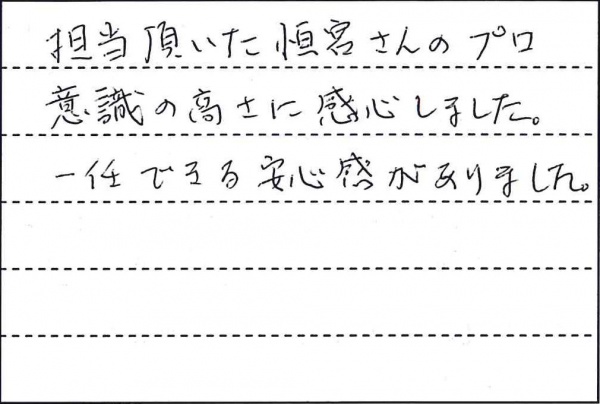 担当頂いた恒宮さんのプロ
意識の高さに感心しました。
一任できる安心感がありました。